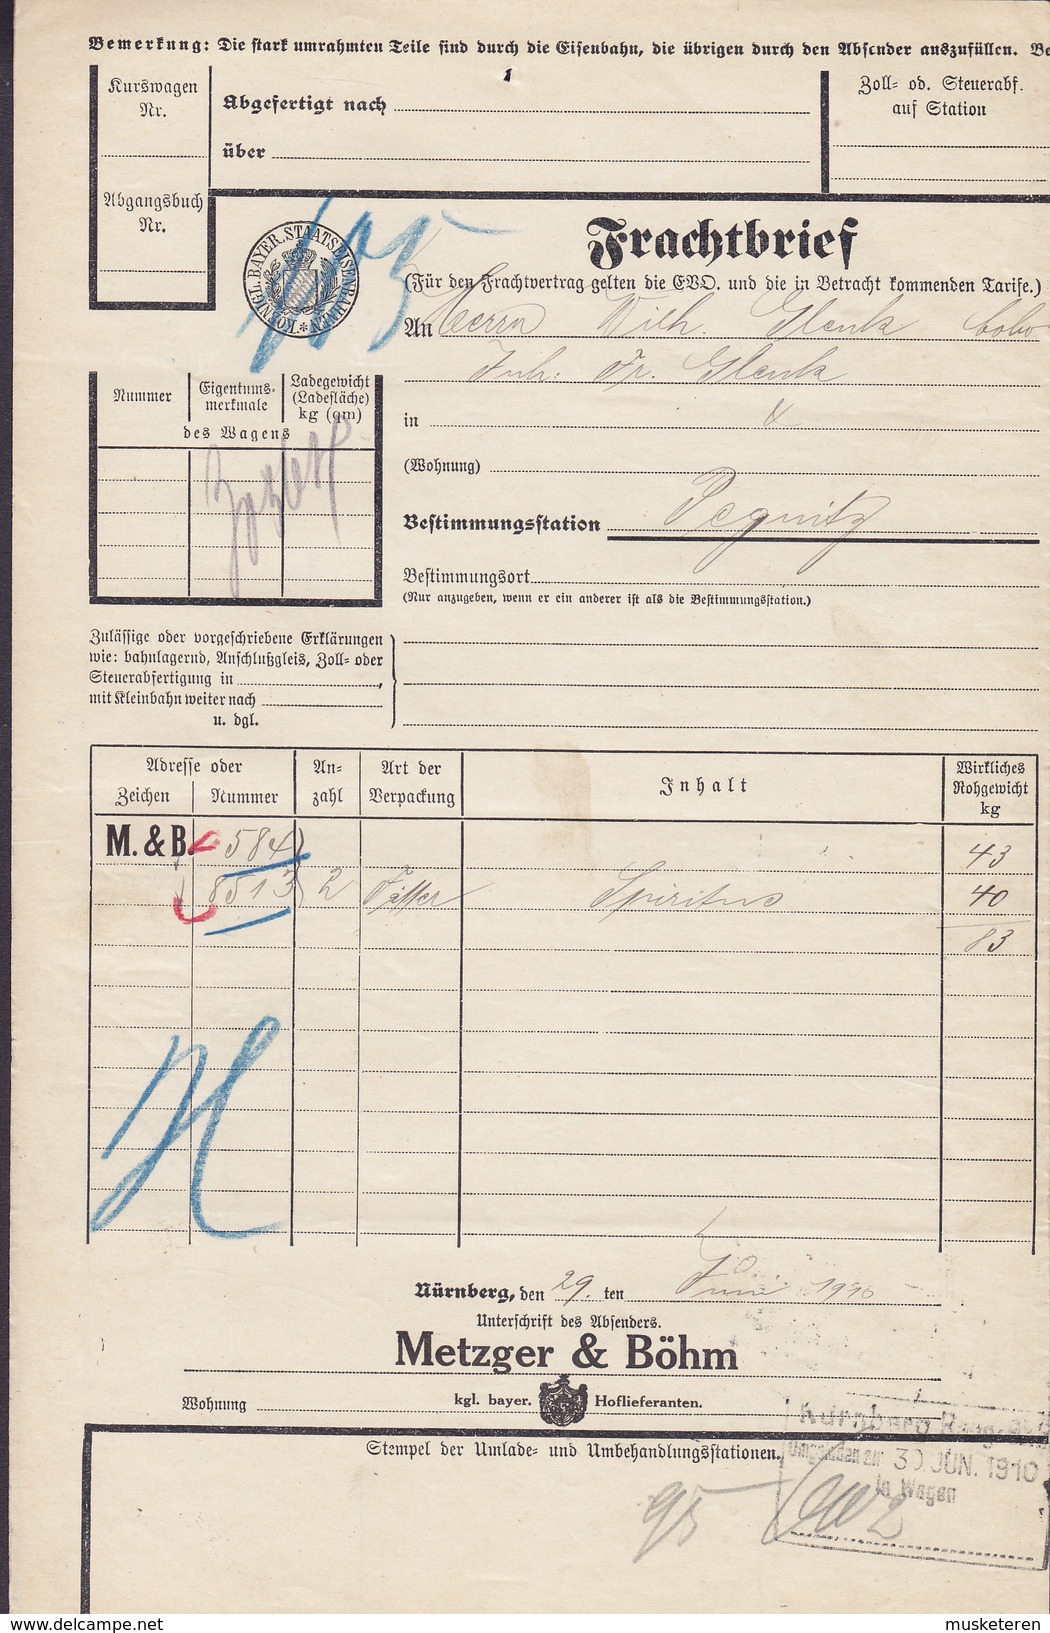 Bemerkung: Die stark umrahmten Teile sind durch die Eisenbahn, die übrigen durch den Absender auszufüllen. Be
Kurswagen
Nr.
Abgefertigt nach
über
Zoll- od. Steuerabf.
auf Station
Abgangsbuch
Nr.
KÖNIGL. BAYER. STAATSEISENBAHNEN
Frachtbrief
(Für den Frachtvertrag gelten die EVO. und die in Betracht kommenden Tarife.)
An Herrn Wilh. Glenk
Inh. Fr. Glenk
in
(Wohnung)
Bestimmungsstation Pegnitz
Bestimmungsort
(Nur anzugeben, wenn er ein anderer ist als die Bestimmungsstation.)
Nummer
Eigentums-
merkmale
Ladegewicht
(Ladefläche)
kg (qm)
des Wagens
Zulässige oder vorgeschriebene Erklärungen
wie: bahnlagernd, Anschlußgleis, Zoll- oder
Steuerabfertigung in ,
mit Kleinbahn weiter nach
u. dgl.
Adresse oder
Zeichen Nummer
An-
zahl
Art der
Verpackung
Inhalt
Wirkliches
Rohgewicht
kg
M. & B. 584 43
8513 2 Fässer Spiritus 40
83
Nürnberg, den 29. ten Juni 1910
Unterschrift des Absenders.
Metzger & Böhm
Wohnung
kgl. bayer. Hoflieferanten.
Stempel der Umlade- und Umbehandlungsstationen.
Nürnberg
Umgeladen am 30. JUN. 1910
in Wagen
95